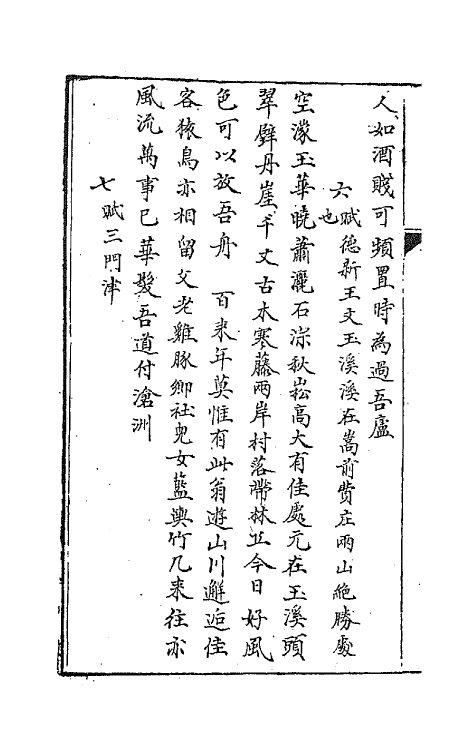 人如酒賤可頻置時為過吾廬
六賦德新王丈玉溪溪在嵩前費庄兩山絶勝處
也
空濛玉華曉蕭灑石淙秋崧高大有佳處元在玉溪頭
翠壁丹崖千丈古木寒藤兩岸村落帶林丘今日好風
色可以放吾舟　百来年莫惟有此翁遊山川邂逅佳
客猿鳥亦相留父老雞豚鄉社兒女籃輿竹几来往亦
風流萬事已華髮吾道付滄洲
七賦三門津